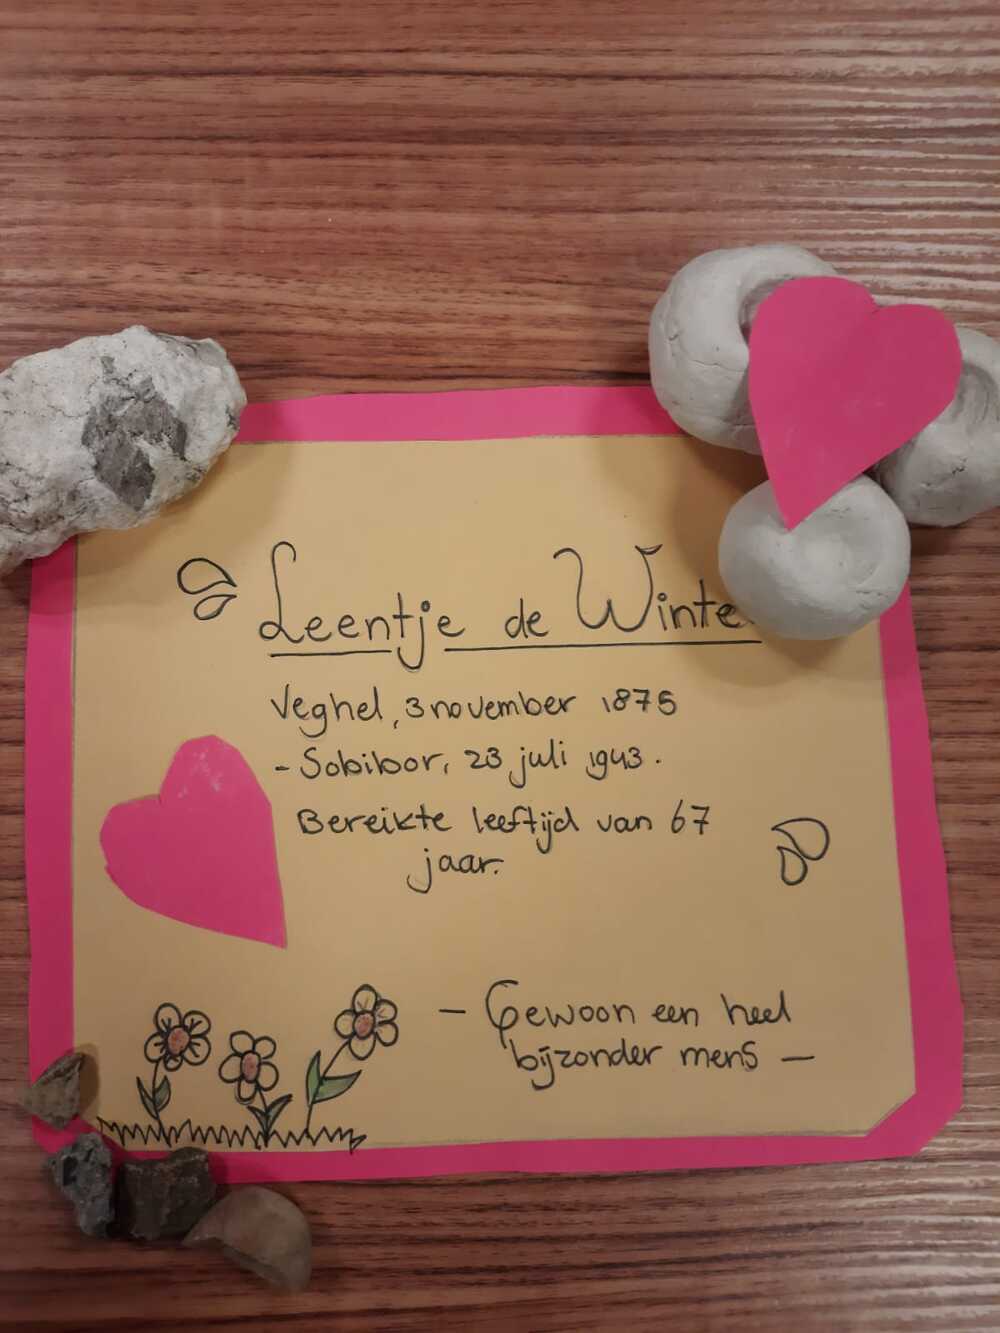 Leentje de Winte
Veghel, 3 november 1875
- Sobibor, 23 juli 1943.
Bereikte leeftijd van 67
jaar.
- Gewoon een heel
bijzonder mens -